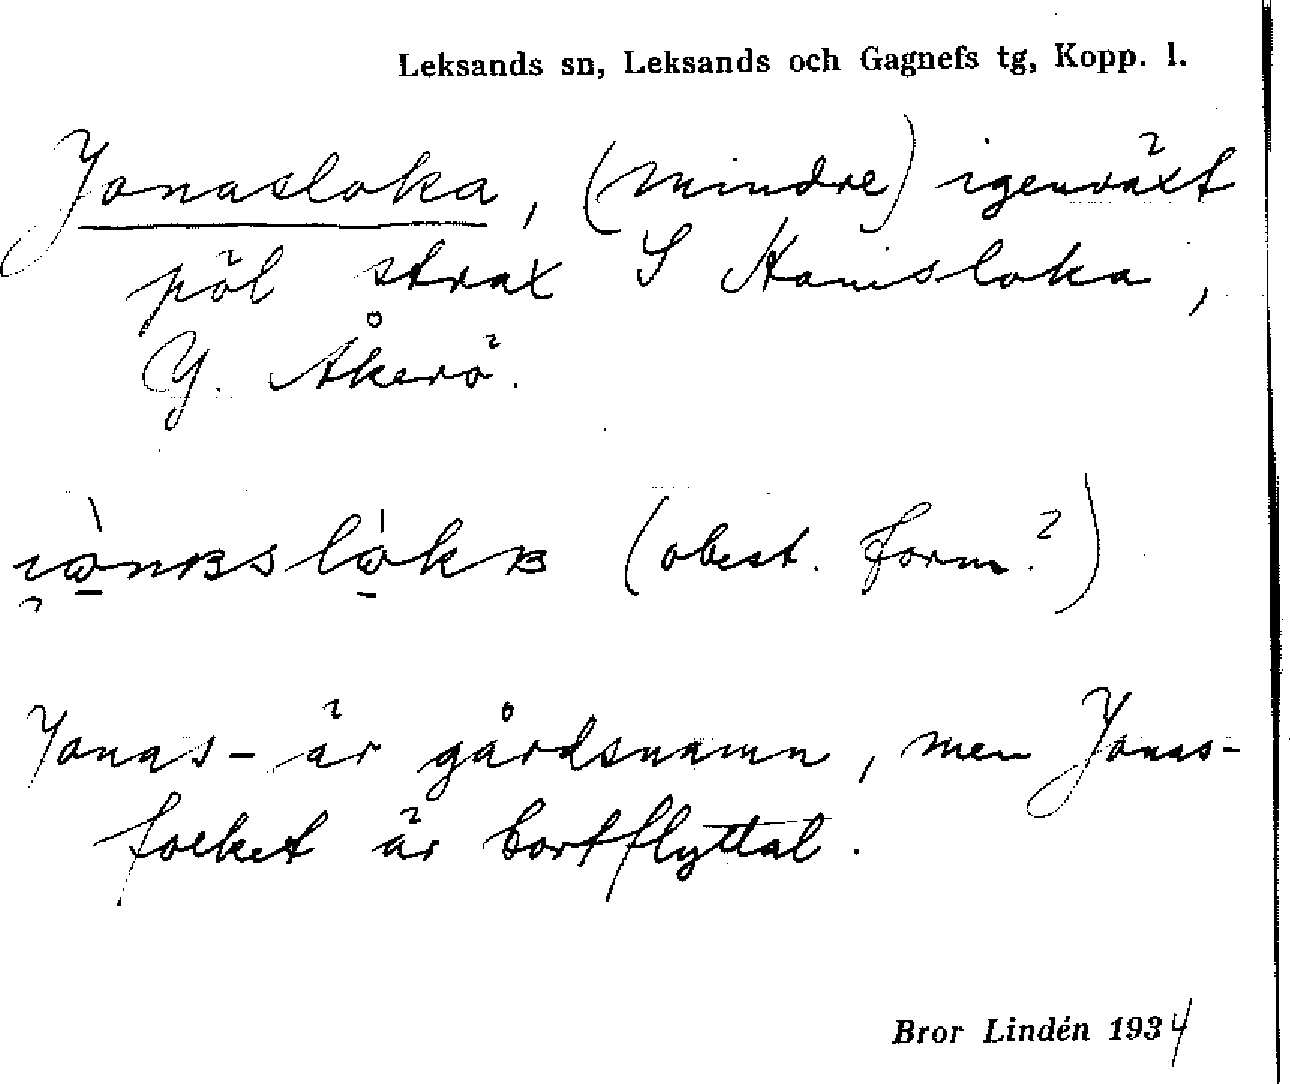 Leksands sn, Leksands och Gagnefs tg, Kopp. l.
Jonasloka, (mindre) igenväxt
pöl strax S Hanisloka,
Y. Åkerö.
(obest. form?)
Jonas- är gårdsnamn, men Jonas-
folket är bortflyttat.
Bror Lindén 1934